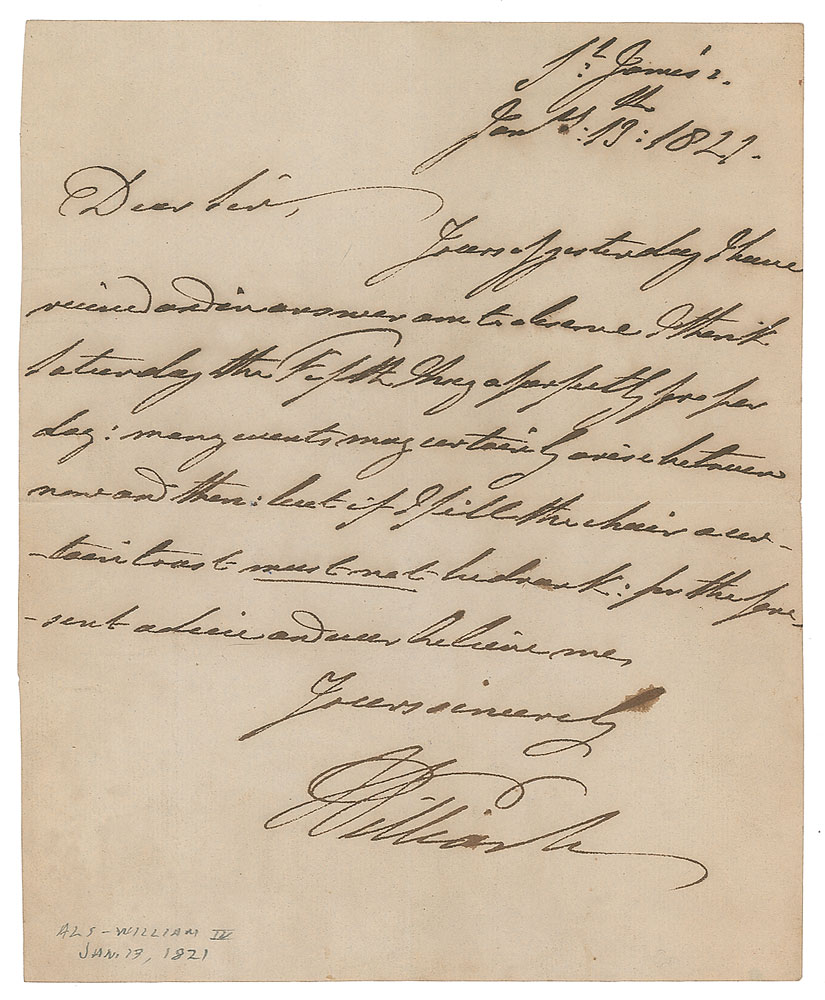 St: James's.
Jany: 13th: 1821.
Dear Sir,
Yours of yesterday I have
recieved and in answer am to observe I think
Saturday the Fifth May a perfectly proper
day: many events may certainly arise between
now and then: but if I fill the chair a cer-
-tain toast must not be drank: for the pre-
-sent adieu and ever believe me,
Yours sincerely
William
ALS - WILLIAM IV
JAN. 13, 1821